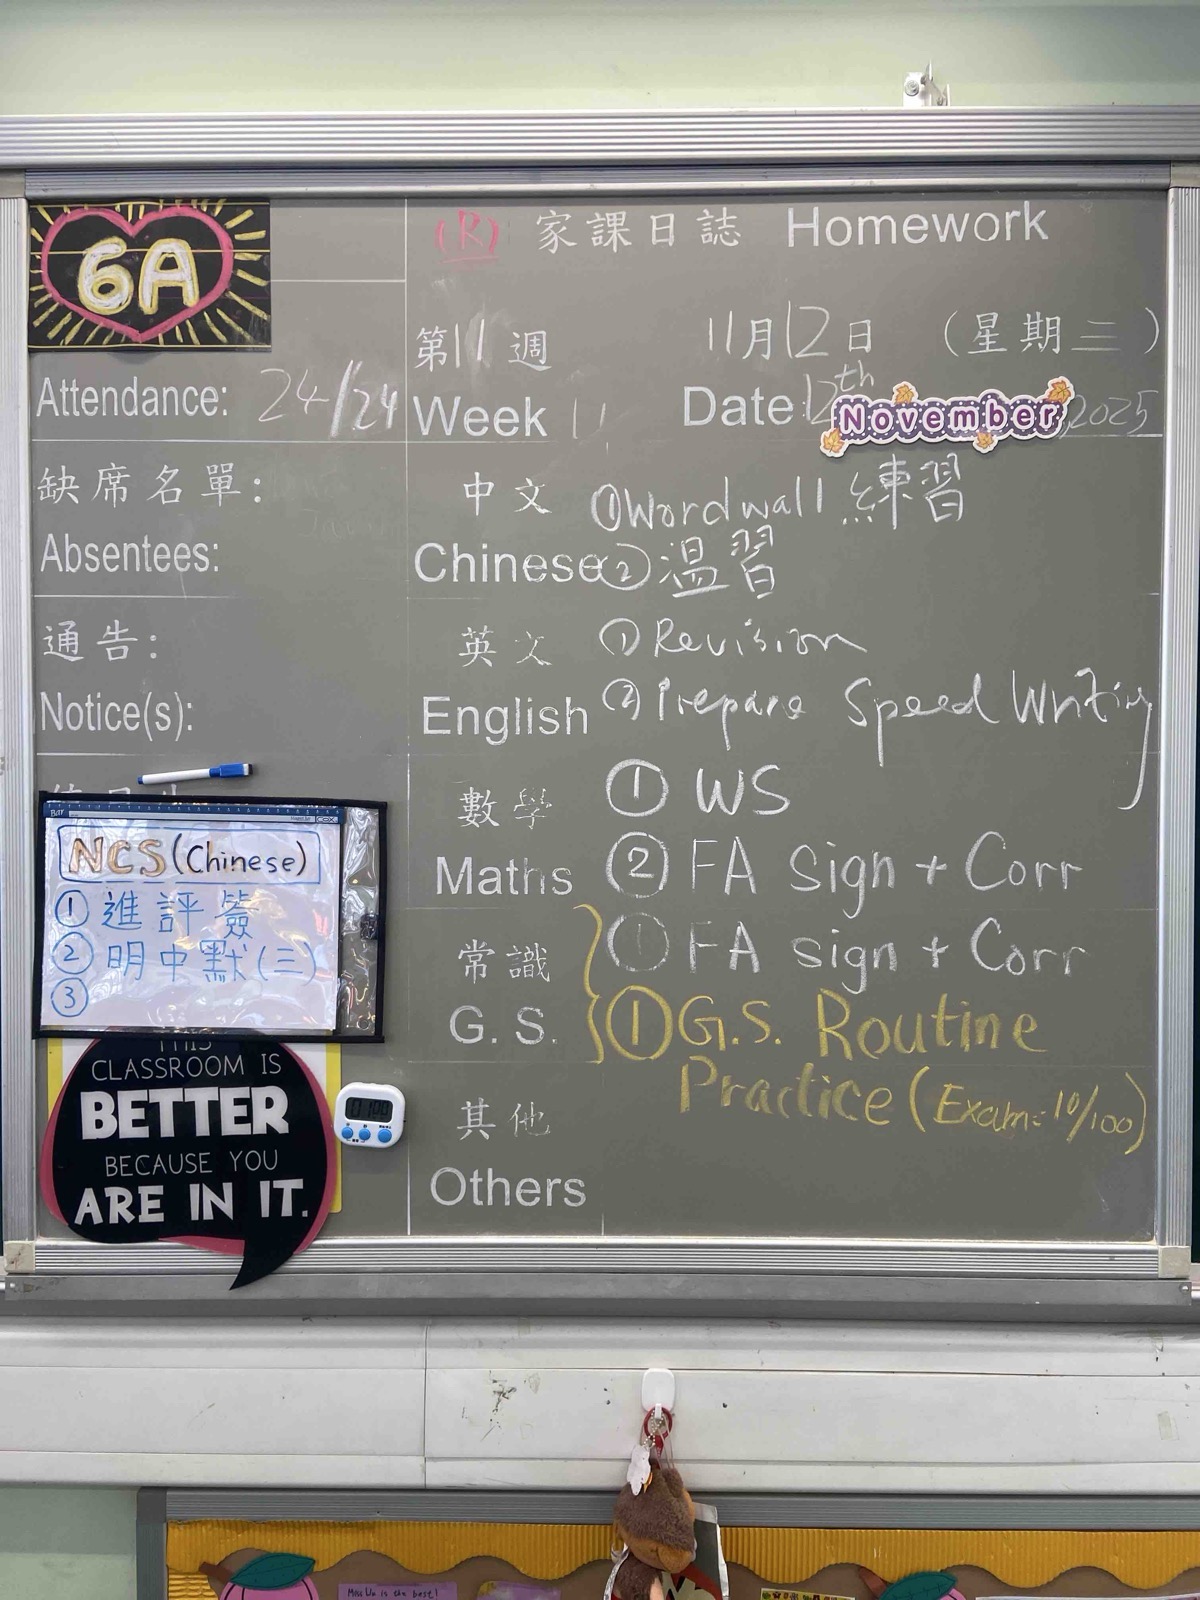 6A
(R) 家課日誌 Homework
第11週 11月12日 (星期三)
Week 11 Date 12th November, 2025
Attendance: 24/24
缺席名單:
Absentees:
通告:
Notice(s):
NCS (Chinese)
① 進評簽
② 明中默(三)
③
THIS
CLASSROOM IS
BETTER
BECAUSE YOU
ARE IN IT.
中文 ① Wordwall 練習
Chinese ② 溫習
英文 ① Revision
English ② Prepare Speed Writing
數學 ① WS
Maths ② FA sign + Corr
常識 ① FA sign + Corr
G. S. ① G.S. Routine
Practice (Exam: 10/100)
其他
Others
Miss Wu is the best!